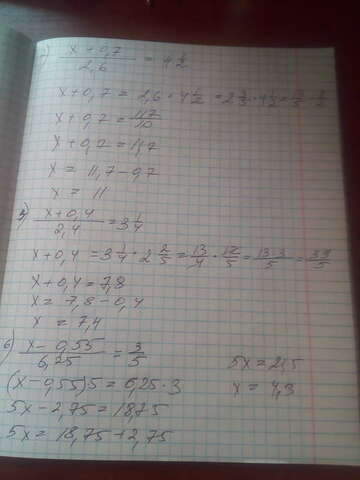 ) (x + 0,7)/2,6 = 4 1/2
x + 0,7 = 2,6 · 4 1/2 = 2 3/5 · 4 1/2 = 13/5 · 9/2
x + 0,7 = 117/10
x + 0,7 = 11,7
x = 11,7 - 0,7
x = 11
) (x + 0,4)/2,4 = 3 1/4
x + 0,4 = 3 1/4 · 2 2/5 = 13/4 · 12/5 = 13·3/5 = 39/5
x + 0,4 = 7,8
x = 7,8 - 0,4
x = 7,4
6) (x - 0,55)/6,25 = 3/5
(x - 0,55)5 = 6,25 · 3
5x - 2,75 = 18,75
5x = 18,75 + 2,75
5x = 21,5
x = 4,3